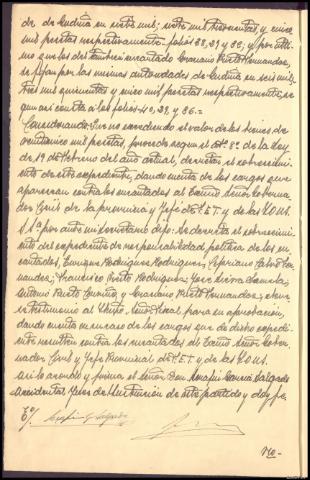 de Gudiña en siete mil; siete mil trescientas, y cinco
mil pesetas respectivamente - folios 38, 39 y 36; y por último
que los del también encartado Graciano Prieto Fernandez,
se fijan por las mismas autoridades de Gudiña en seis mil
tres mil quinientas y cinco mil pesetas respectivamente, se
gun asi consta a los folios 40, 39, y 36.=
Considerando: Que no excediendo el valor de los bienes de
veinticinco mil pesetas, procede segun el art.º 8º de la Ley
de 19 de Febrero del año actual, decretar el sobreseimien
to de este expediente, dando cuenta de los cargos que
aparezcan contra los encartados al Excmo Señor Goberna
dor Civil de la provincia y Jefe de F.E.T. y de las J.O.N.S.
S.Sª por ante mi secretario dijo: Se decreta el sobreseimiento
del expediente de responsabilidad politica de los en
cartados, Enrique Rodriguez Rodriguez,
Francisco Prieto Rodriguez; Jose
Antonio Prieto y Graciano Prieto Fernandez;
testimonio al Iltmo. Señor Fiscal para su aprobación,
dando cuenta en su caso de los cargos que de dicho expedi
ente resulten contra los encartados al Excmo Señor Gober
nador Civil y Jefe Provincial de F.E.T. y de las J.O.N.S.
Asi lo acordó y firma el Señor Don Serafin Garcia Salgado
accidental Juez de Instrucción de este partido y doy fe.
Eº/ Serafin G. Salgado
No-